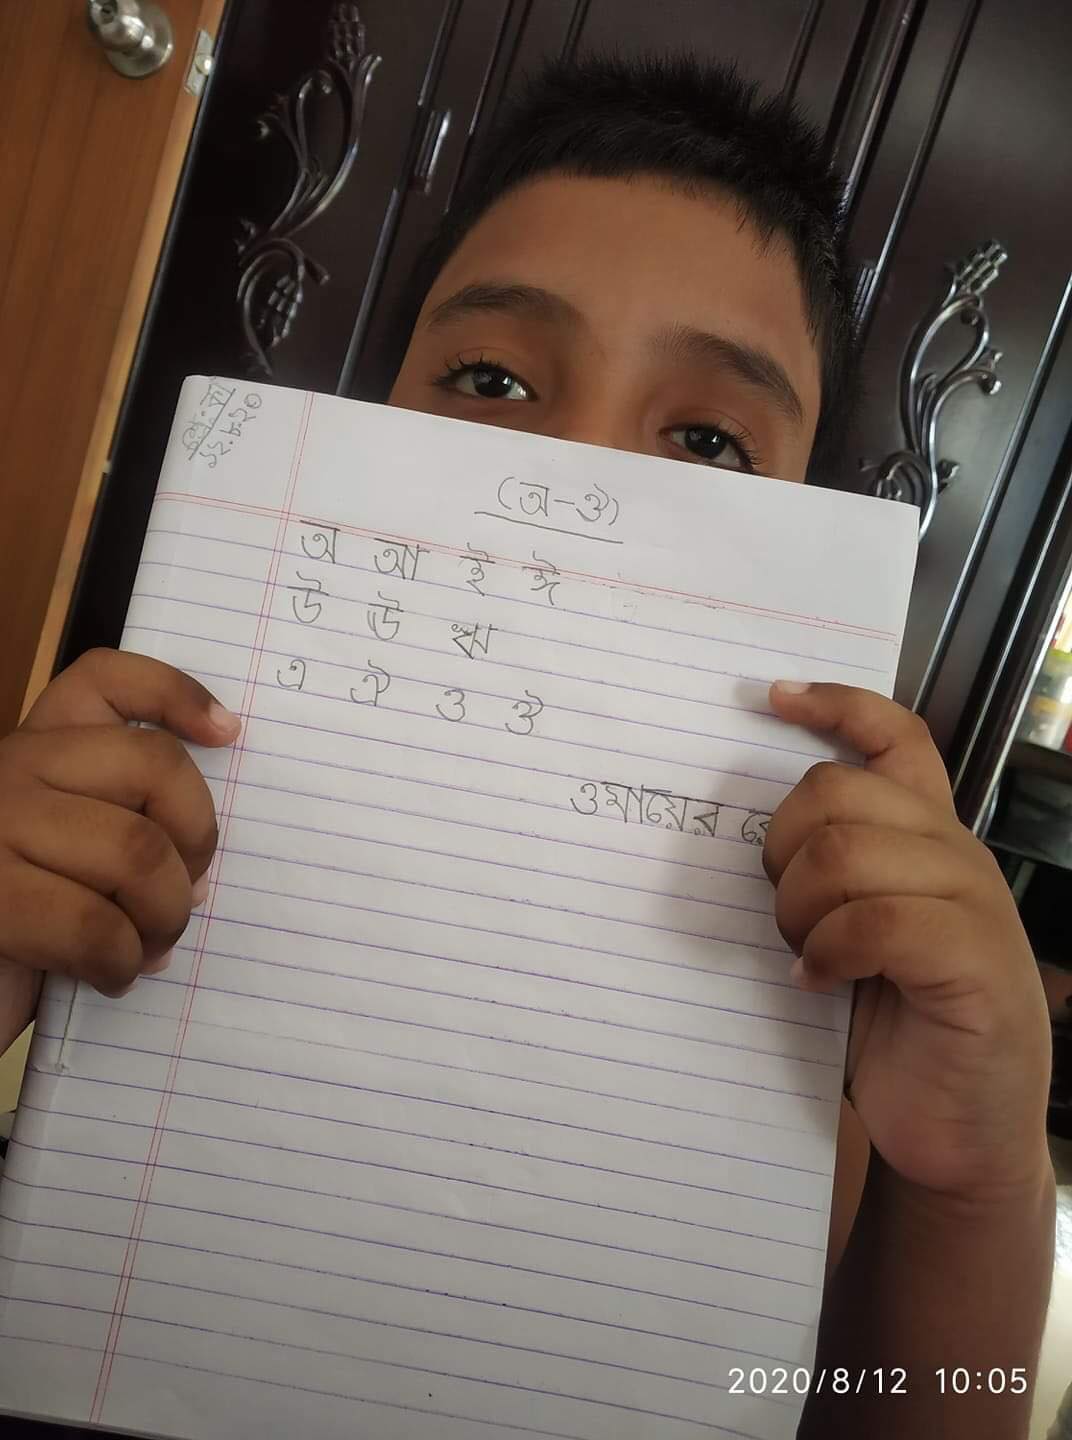 ১২.৮.২০
(অ-ঔ)
অ আ ই ঈ
উ ঊ ঋ
এ ঐ ও ঔ
ওমায়ের
2020/8/12 10:05